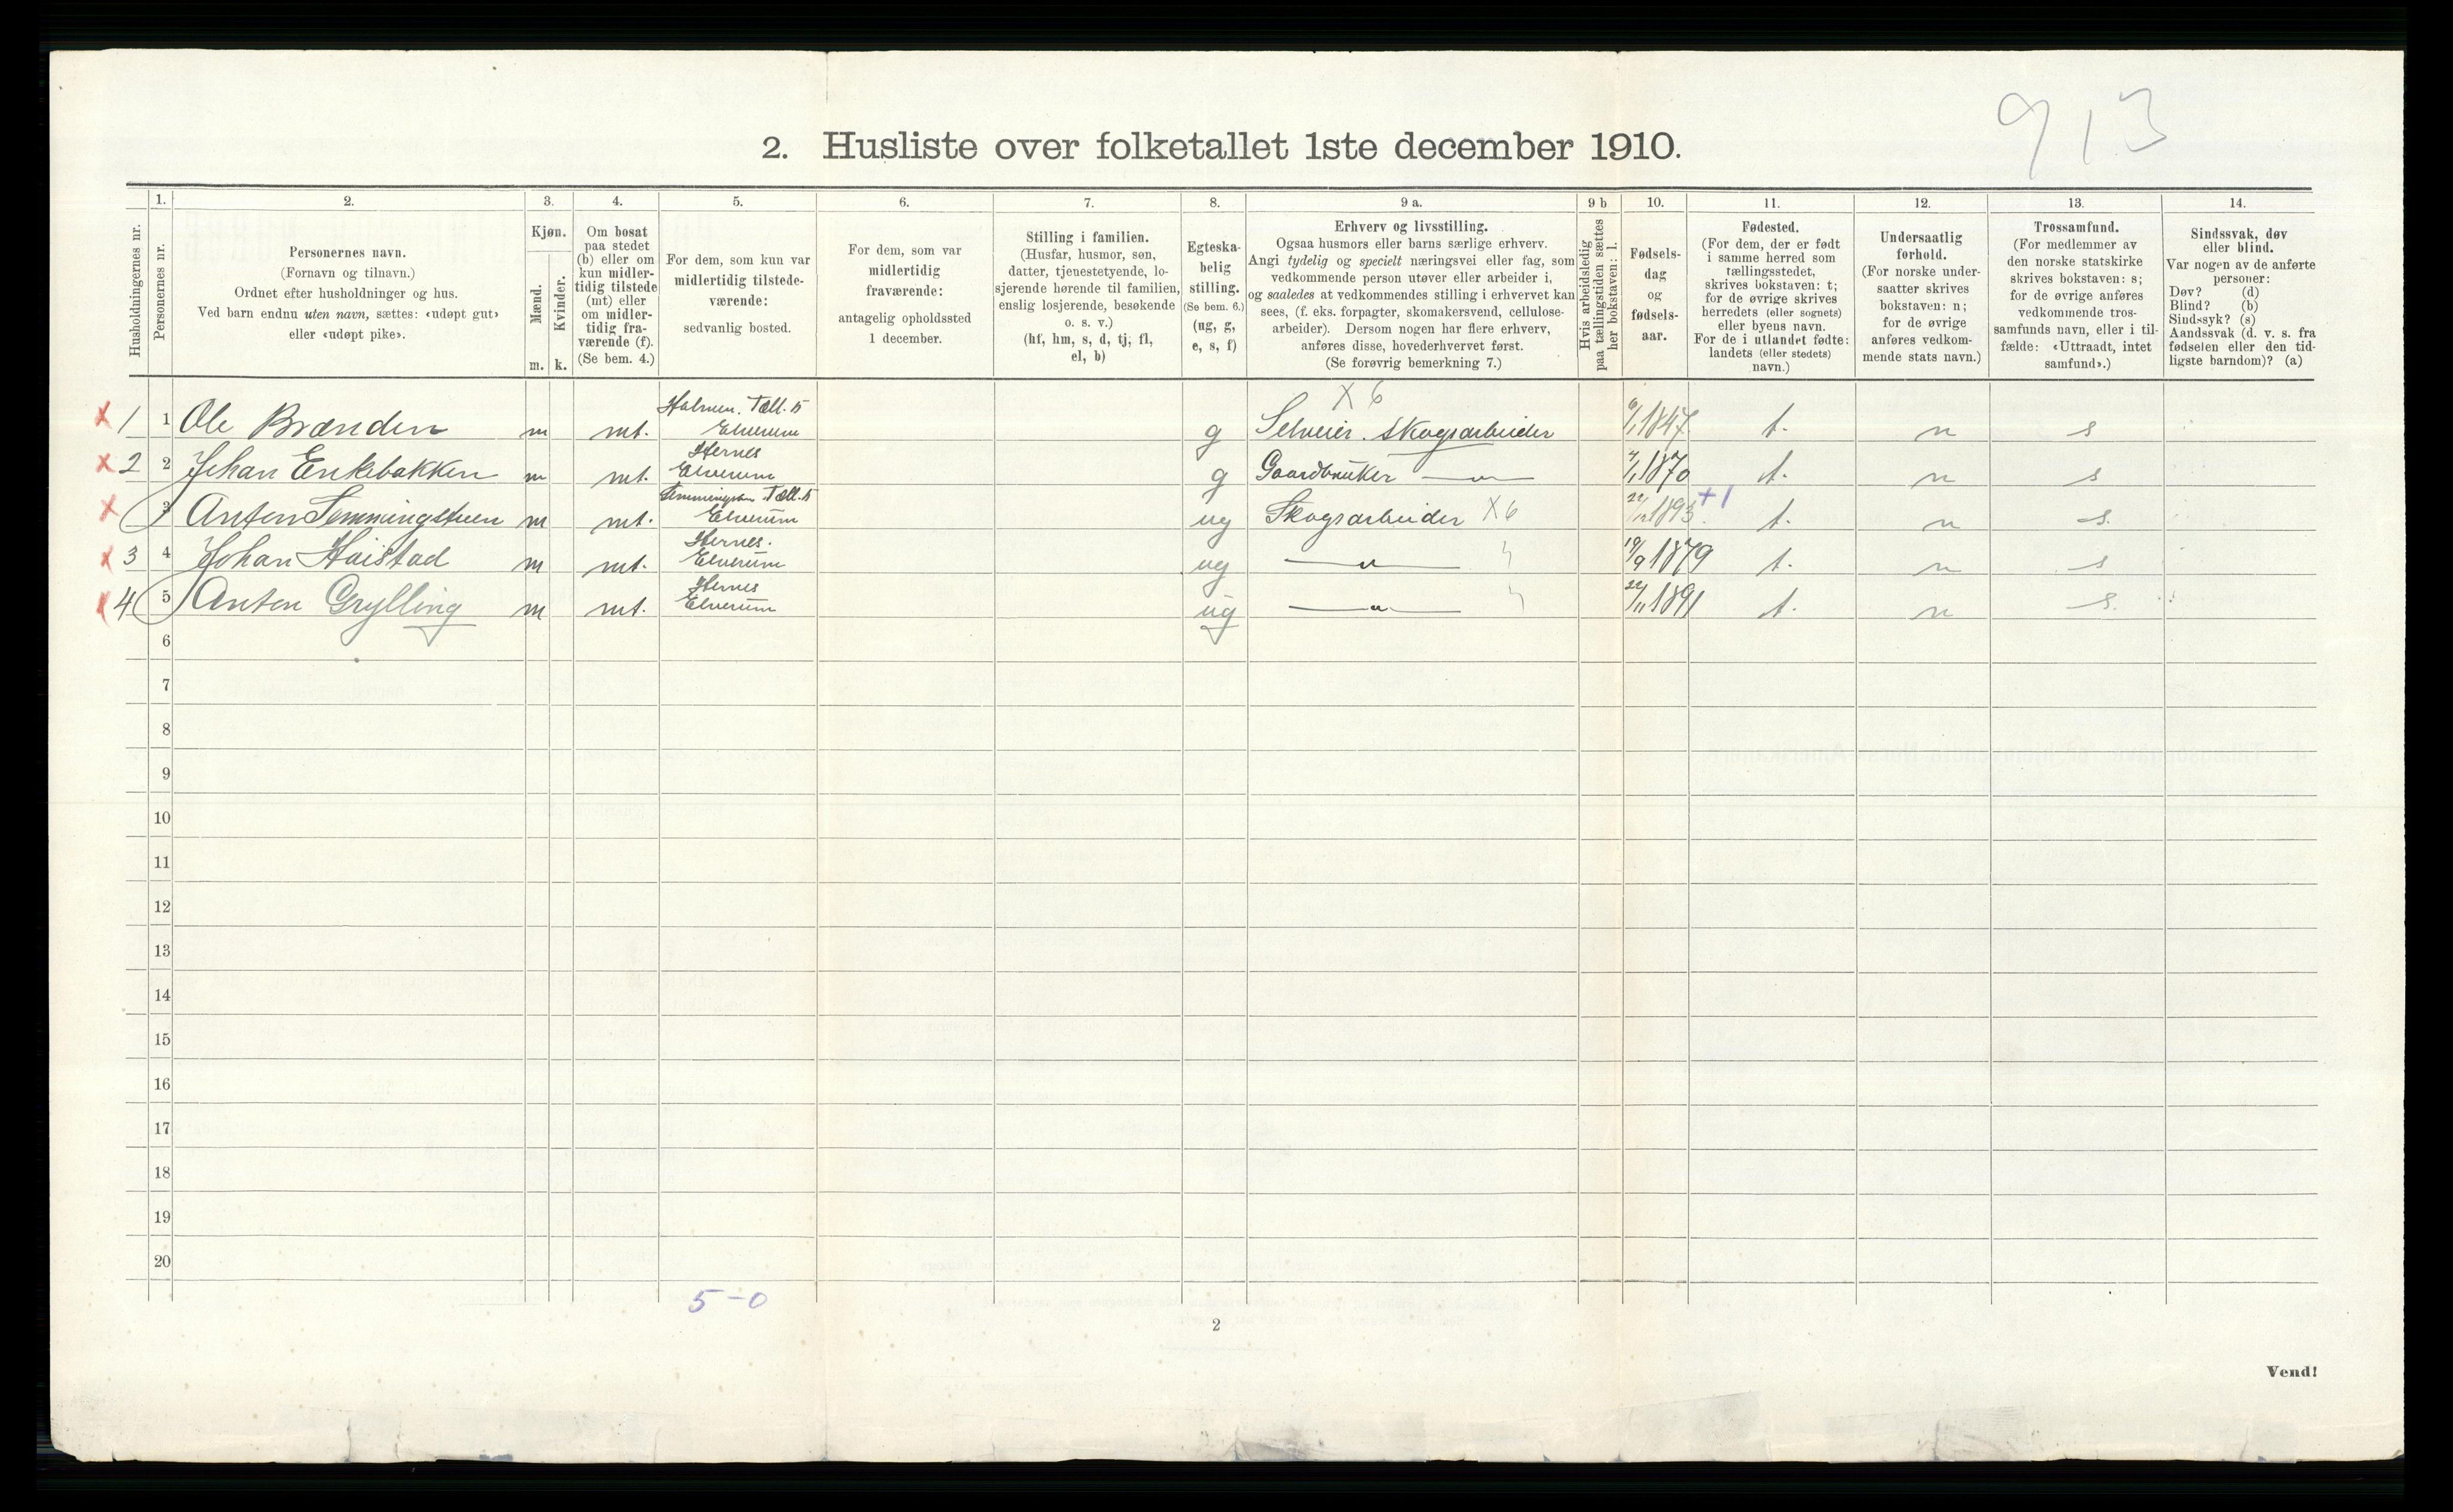 913
2. Husliste over folketallet 1ste december 1910.
Husholdningernes nr.
1.
Personernes nr.
2.
Personernes navn.
(Fornavn og tilnavn.)
Ordnet efter husholdninger og hus.
Ved barn endnu uten navn, sættes: «udøpt gut»
eller «udøpt pike».
3.
Kjøn.
Mænd.
m.
Kvinder.
k.
4.
Om bosat
paa stedet
(b) eller om
kun midler-
tidig tilstede
(mt) eller
om midler-
tidig fra-
værende (f).
(Se bem. 4.)
5.
For dem, som kun var
midlertidig tilstede-
værende:
sedvanlig bosted.
6.
For dem, som var
midlertidig
fraværende:
antagelig opholdssted
1 december.
7.
Stilling i familien.
(Husfar, husmor, søn,
datter, tjenestetyende, lo-
sjerende hørende til familien,
enslig losjerende, besøkende
o. s. v.)
(hf, hm, s, d, tj, fl,
el, b)
8.
Egteska-
belig
stilling.
(Se bem. 6.)
(ug, g,
e, s, f)
9 a.
Erhverv og livsstilling.
Ogsaa husmors eller barns særlige erhverv.
Angi tydelig og specielt næringsvei eller fag, som
vedkommende person utøver eller arbeider i,
og saaledes at vedkommendes stilling i erhvervet kan
sees, (f. eks. forpagter, skomakersvend, cellulose-
arbeider). Dersom nogen har flere erhverv,
anføres disse, hovederhvervet først.
(Se forøvrig bemerkning 7.)
9 b
Hvis arbeidsledig
paa tællingstiden sættes
her bokstaven: l.
10.
Fødsels-
dag
og
fødsels-
aar.
11.
Fødested.
(For dem, der er født
i samme herred som
tællingsstedet,
skrives bokstaven: t;
for de øvrige skrives
herredets (eller sognets)
eller byens navn.
For de i utlandet fødte:
landets (eller stedets)
navn.)
12.
Undersaatlig
forhold.
(For norske under-
saatter skrives
bokstaven: n;
for de øvrige
anføres vedkom-
mende stats navn.)
13.
Trossamfund.
(For medlemmer av
den norske statskirke
skrives bokstaven: s;
for de øvrige anføres
vedkommende tros-
samfunds navn, eller i til-
fælde: «Uttraadt, intet
samfund».)
14.
Sindssvak, døv
eller blind.
Var nogen av de anførte
personer:
Døv? (d)
Blind? (b)
Sindssyk? (s)
Aandssvak (d. v. s. fra
fødselen eller den tid-
ligste barndom)? (a)
X 6
x 1 1 Ole Brænden m mt. Tæll. 15 Elverum g Selveier. Skogsarbeider 6/1 1847 t. n s
x 2 2 Johan Enkebakken m mt. Hernes Elverum g Gaardbruker —"— 4/1 1870 t. n s
x 3 Anton Semmingstuen m mt. Tæll. 15 Elverum ug Skogsarbeider X6 22/12 1893 +1 t. n s.
x 3 4 Johan Haistad m mt. Hernes. Elverum ug —"— 19/9 1879 t. n s
4 5 Anton Grylling m mt. Hernes Elverum ug —"— 22/11 1891 t. n s.
6
7
8
9
10
11
12
13
14
15
16
17
18
19
20
5-0
2
Vend!